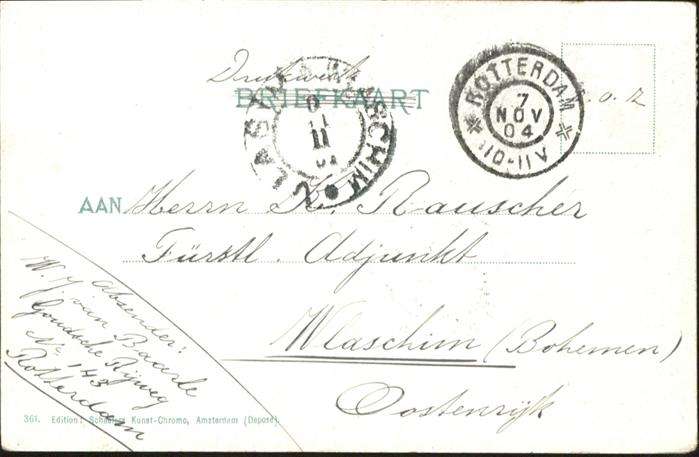 Drukwerk
BRIEFKAART
ROTTERDAM
7
NOV
04
10-11V
VLAŠIM WLASCHIM
11
T.o.Z
AAN Herrn K. Rauscher
Fürstl. Adjunkt
Wlaschim (Bohemen)
Oostenrijk
Absender:
W. J. van Baarle
Goudsche Rijweg
No 143
Rotterdam
361. Edition: Kunst-Chromo, Amsterdam (Deposé).